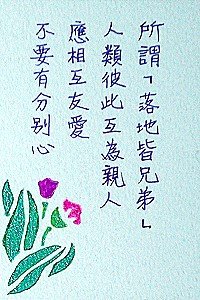 所謂「落地皆兄弟」
人類彼此互為親人
應相互友愛
不要有分別心